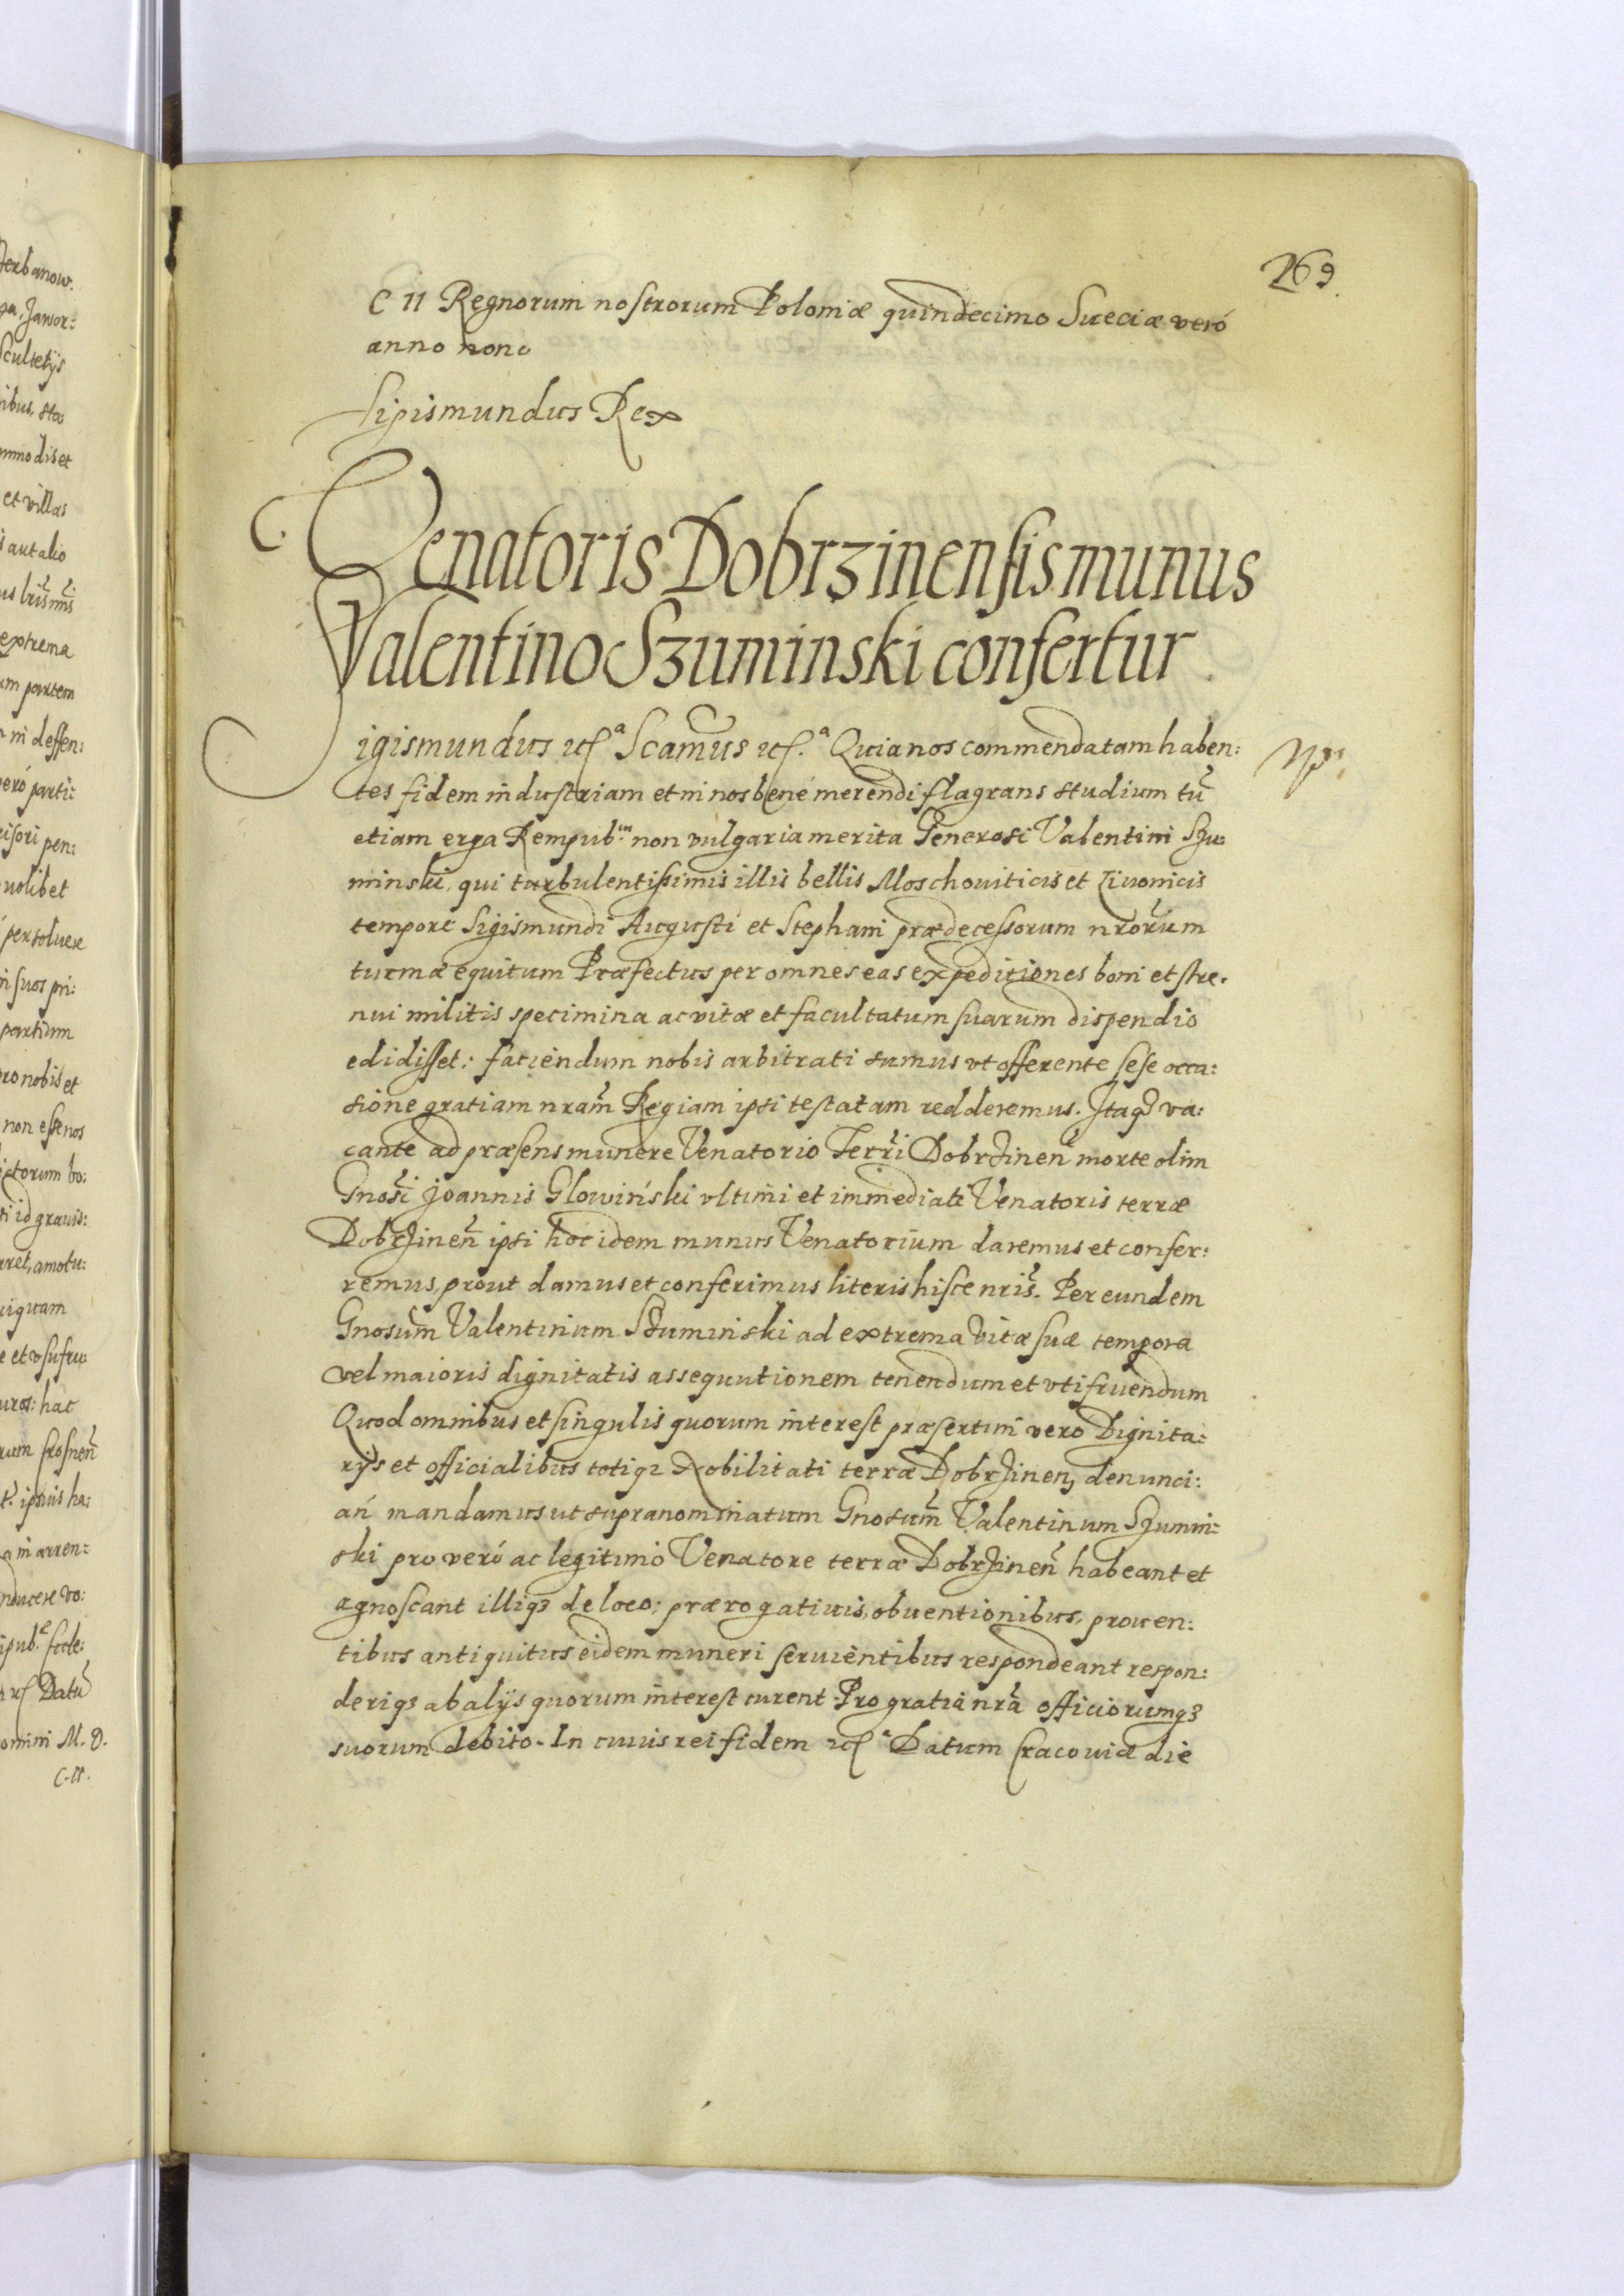 269
C II Regnorum nostrorum Poloniæ quindecimo Sueciæ veró
anno nono
Sigismundus Rex
Venatoris Dobrzinensis munus
Valentino Szuminski confertur
Sigismundus etc.ᵃ Scam̃us etc.ᵃ Quia nos commendatam haben:
tes fidem industriam et in nos bené merendi flagrans studium tũ
etiam erga Rempub.ᵐ non vulgaria merita Generosi Valentini Szu:
minski, qui turbulentissimis illis bellis Moschouiticis et Liuonicis
tempore Sigismundi Augusti et Stephani prædecessorum nrõrum
turmæ equitum Præfectus per omnes eas expeditiones boni et stre.
nui militis specimina ac vitæ et facultatum suarum dispendio
edidisset: faciendum nobis arbitrati sumus vt offerente sese occa:
sione gratiam nram̃ Regiam ipsi testatam redderemus. Itaqꝫ va:
cante ad præsens munere Venatorio Terrĩ Dobrzineñ morte olim
Gnosĩ Joannis Glowiński vltimi et immediati Venatoris terræ
Dobrzineñ ipsi hoc idem munus Venatorium daremus et confer:
remus, prout damus et conferimus literis hisce nrĩs. Per eundem
Gnosum̃ Valentinum Szuminski ad extrema vitæ suæ tempora
vel maioris dignitatis assequutionem tenendum et vtifruendum
Quod omnibus et singulis quorum interest præsertim vero Dignita:
rijs et officialibus totiqꝫ Nobilitati terræ Dobrzineñ denunci:
ań mandamus ut supranominatum Gnosum̃ Valentinum Szumin:
ski pro veró ac legitimo Venatore terræ Dobrzineñ habeant et
agnoscant illiqꝫ de loco, prærogatiuis, obuentionibus, prouen:
tibus antiquitus eidem muneri seruientibus respondeant respon:
deriqꝫ ab alijs quorum interest curent. Pro gratia nrã officiorumqꝫ
suorum debito. In cuius rei fidem etc.ᵃ Datum Cracouiæ die